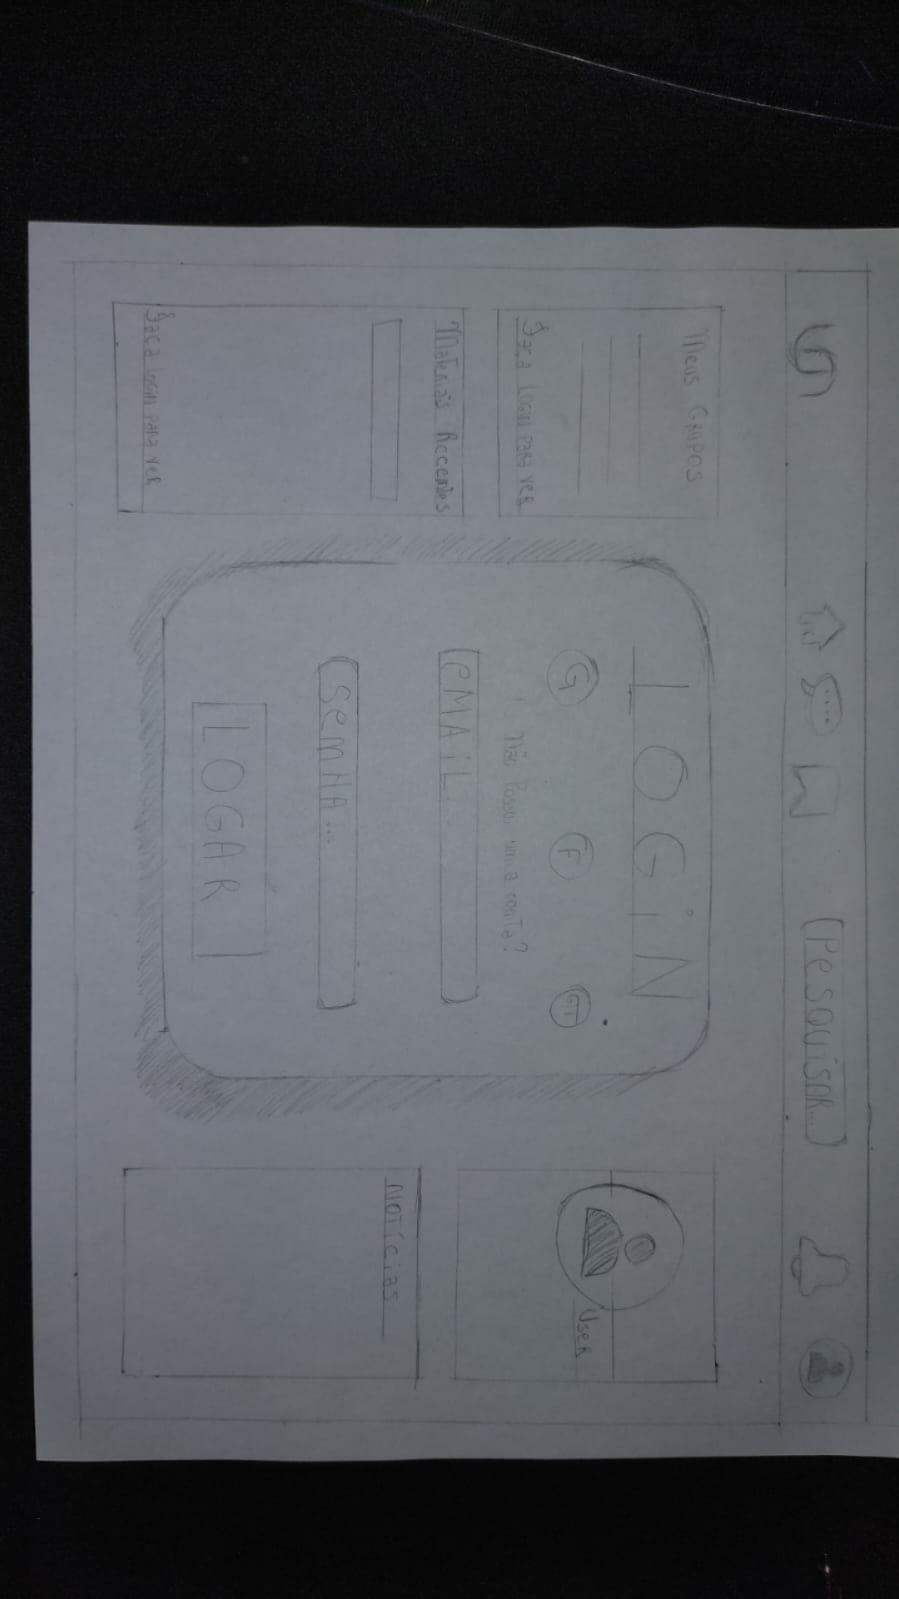 Pesquisar...
Meus Grupos
Faça Login para ver
Materiais Recentes
Faça Login para ver
LOGiN
G
F
GT
Não Possui uma conta?
eMAiL...
SeNHA...
LOGAR
User
Notícias